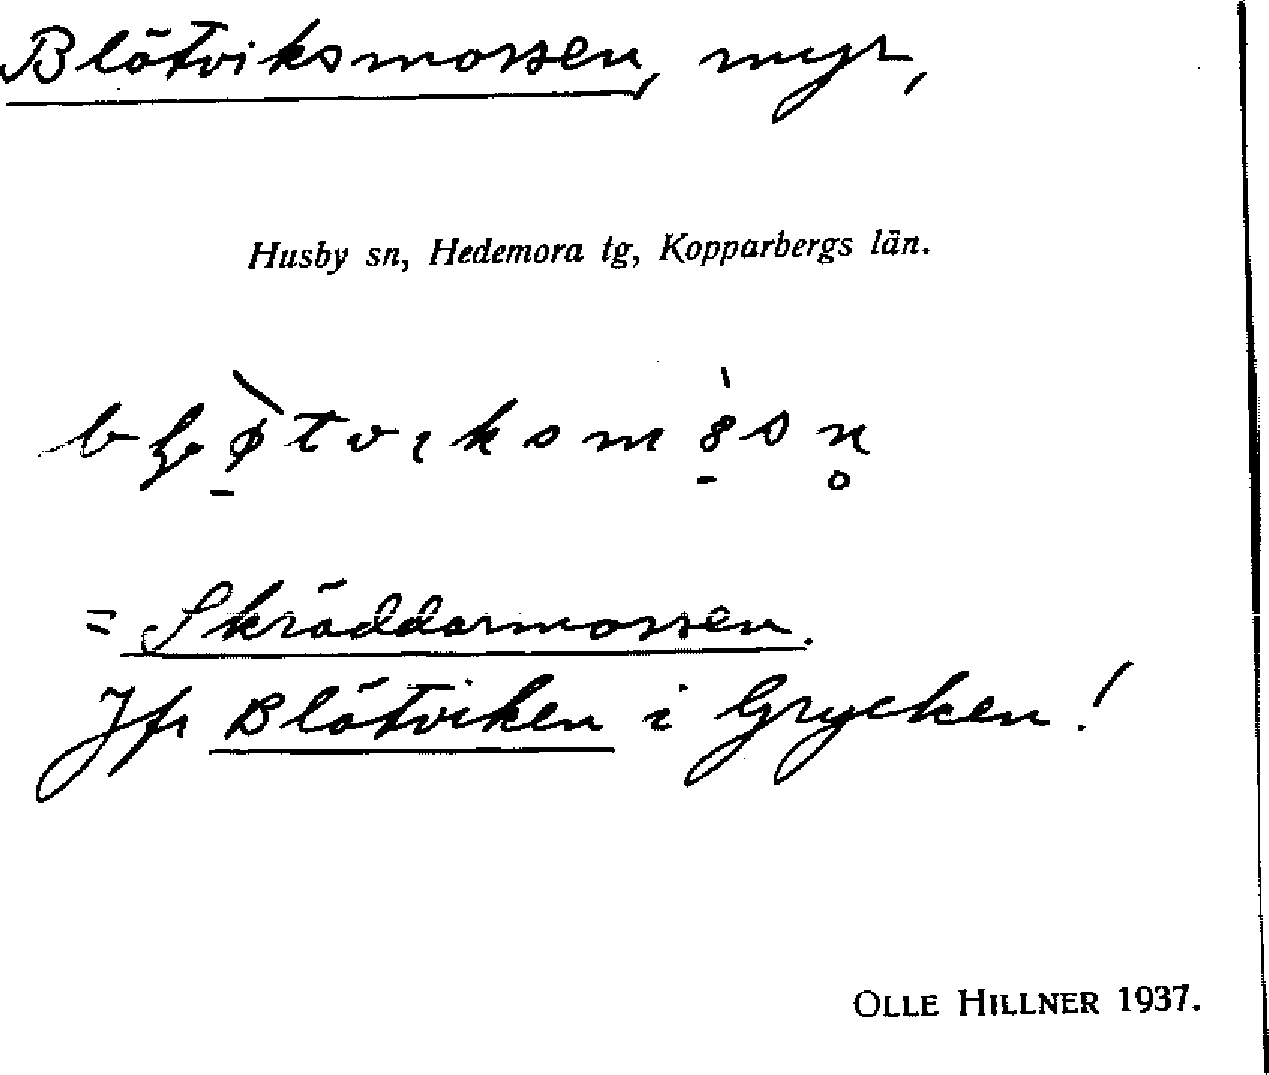 Blötviksmossen, myr,
Husby sn, Hedemora tg, Kopparbergs län.
= Skräddarmossen.
Jfr Blötviken i Grycken!
OLLE HILLNER 1937.